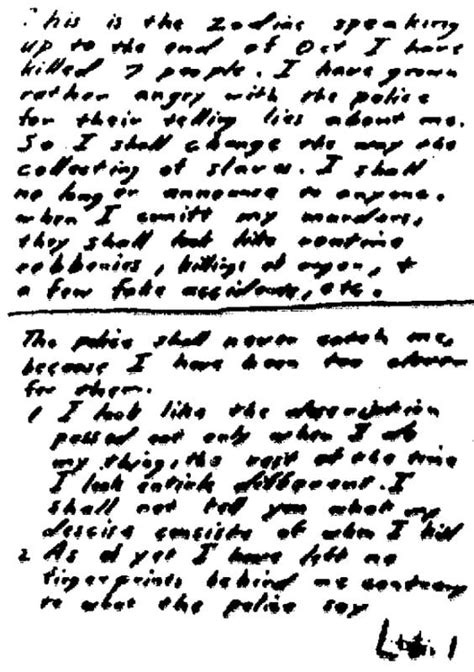 This is the Zodiac speaking
up to the end of Oct I have
killed 7 people. I have grown
rather angry with the police
for their telling lies about me.
So I shall change the way the
collecting of slaves. I shall
no longer announce to anyone.
when I comitt my murders,
they shall look like routine
robberies, killings of anger, +
a few fake accidents, etc.
The police shall never catch me,
because I have been too clever
for them.
1 I look like the description
passed out only when I do
my thing, the rest of the time
I look entirle different. I
shall not tell you what my
descise consists of when I kill
2 As of yet I have left no
fingerprints behind me contrary
to what the police say
1